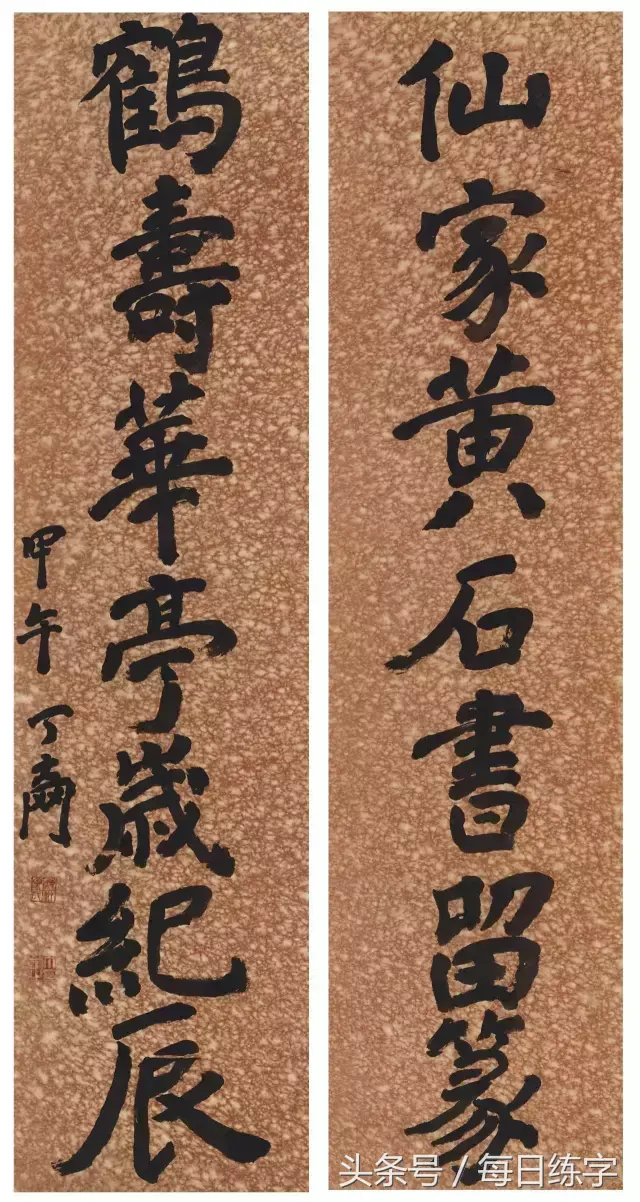 仙家黄石書留篆
鶴壽華亭歲紀辰
甲午 丁
头条号 / 每日练字